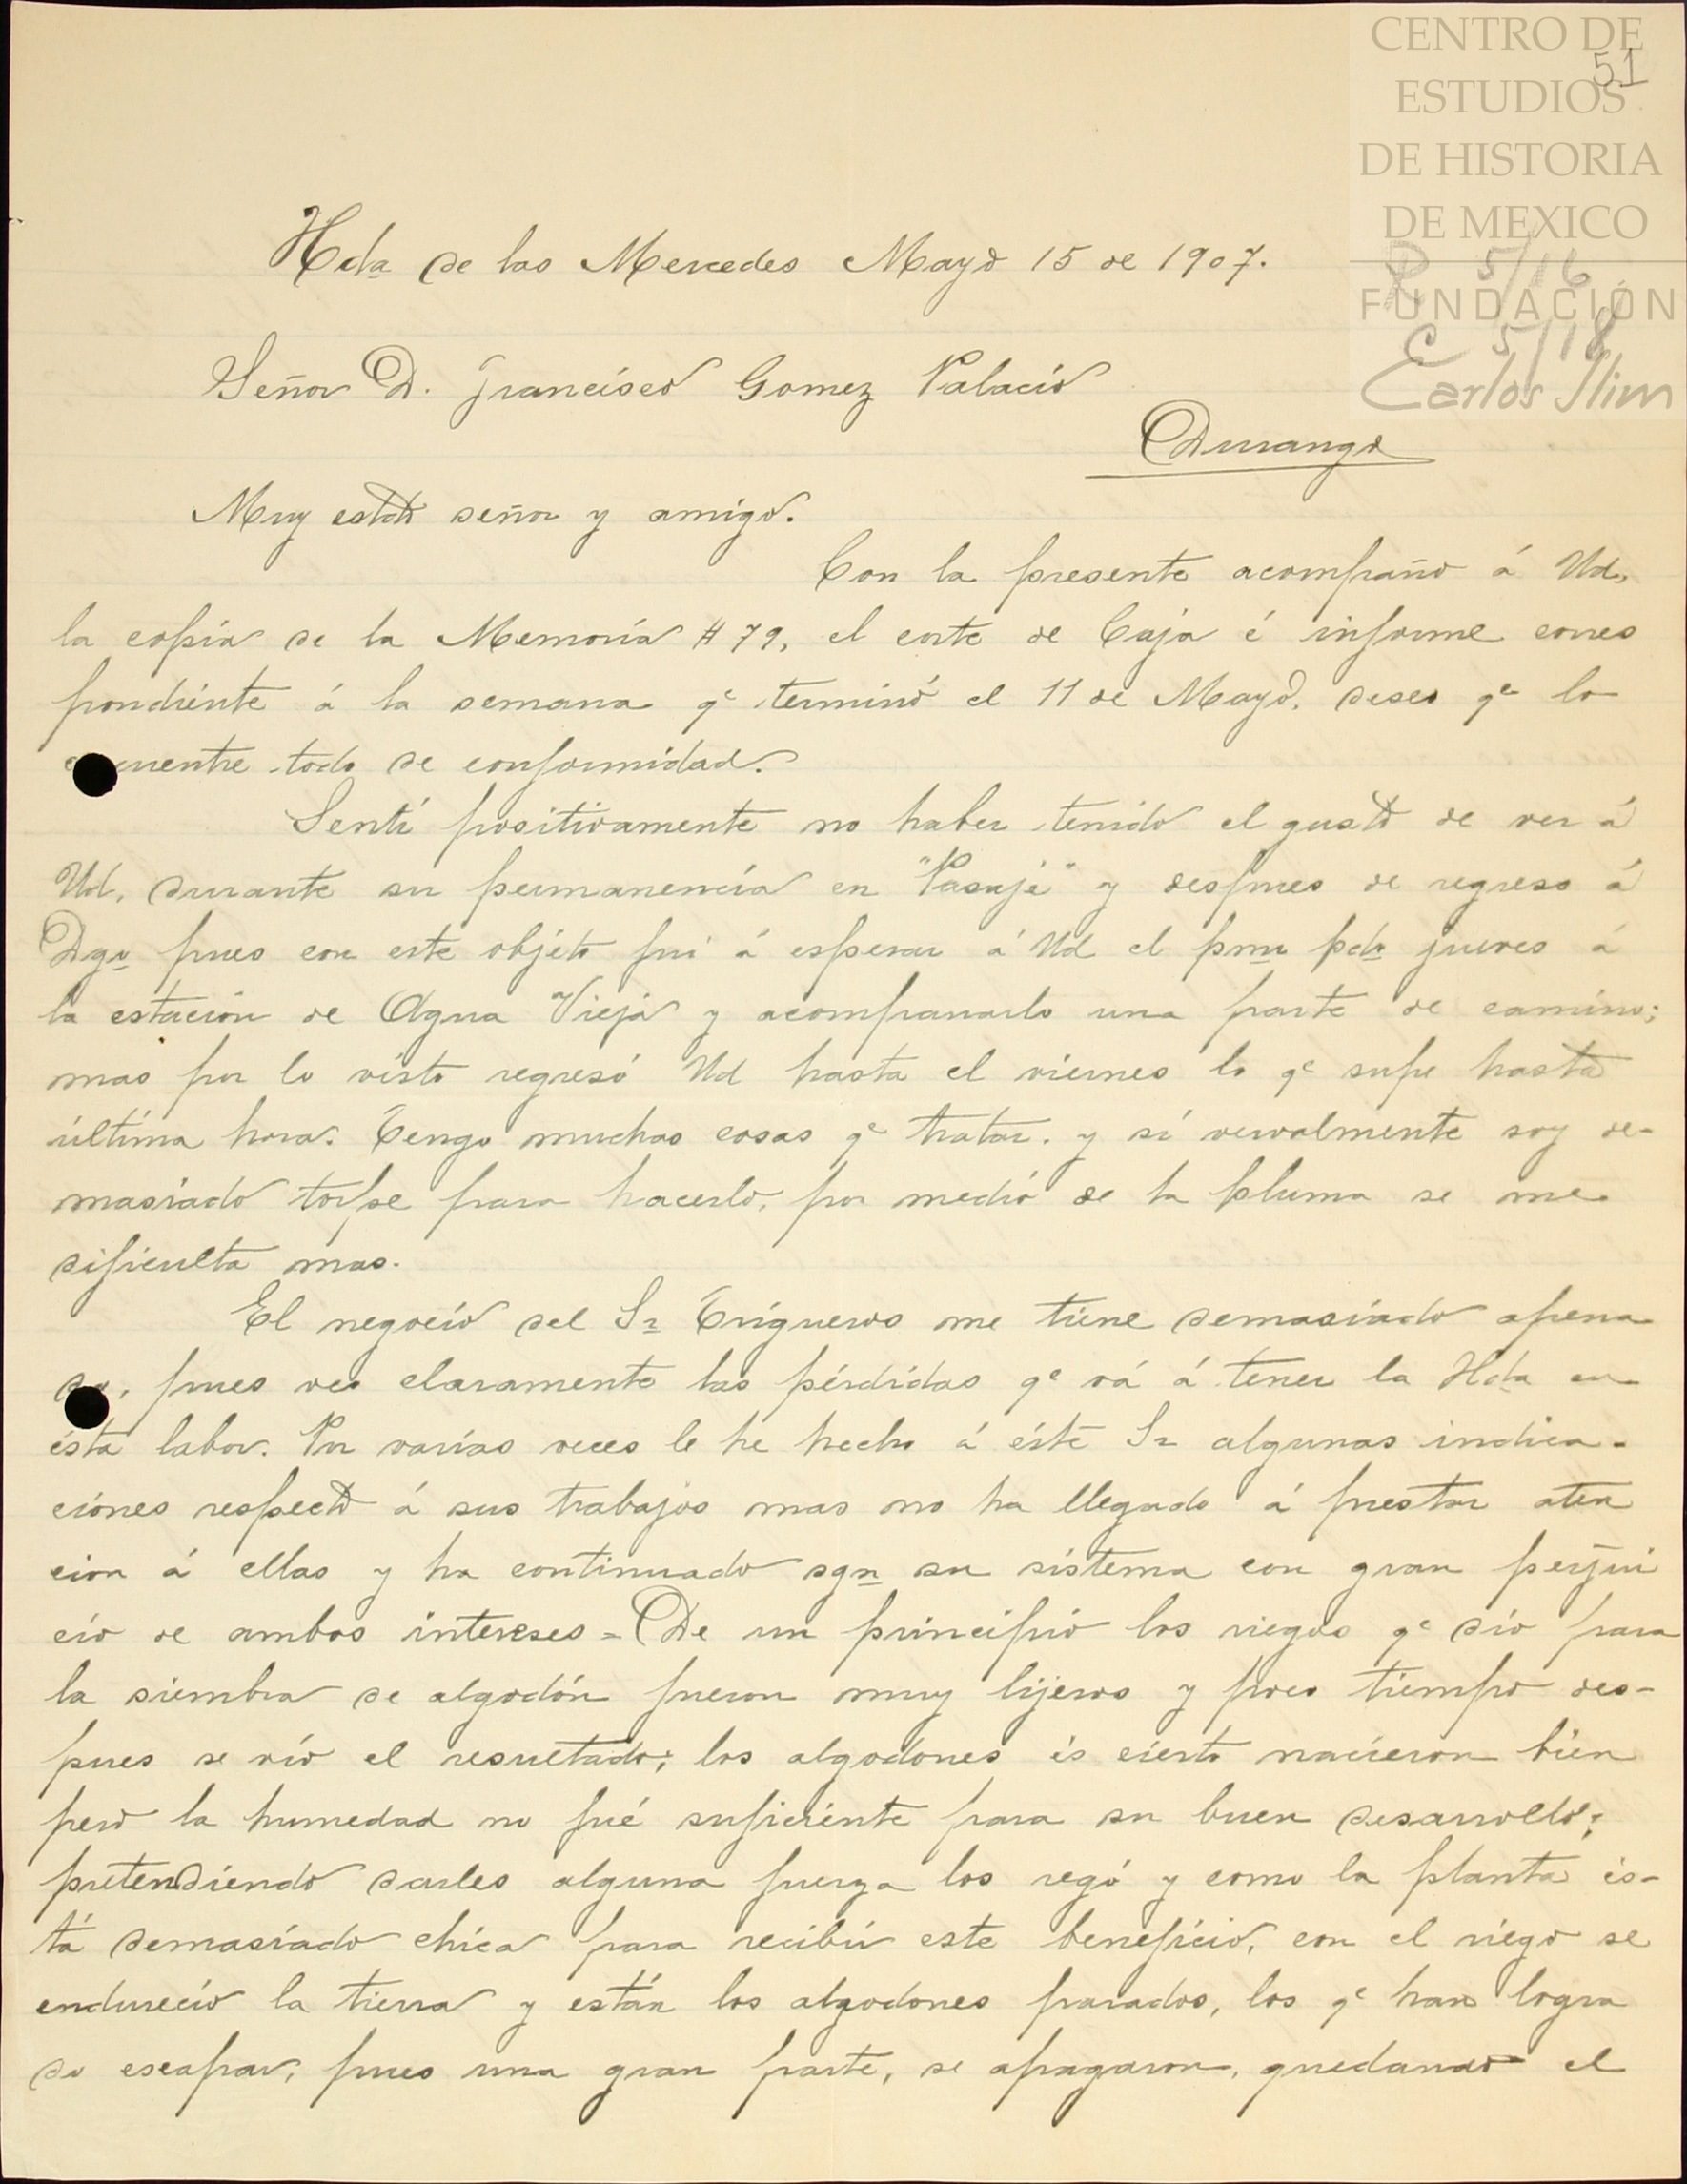 CENTRO DE
51
ESTUDIOS
DE HISTORIA
DE MEXICO
R 5/16
FUNDACIÓN
C 5/18
Carlos Slim
Hda de las Mercedes Mayo 15 de 1907.
Señor D. Francisco Gomez Palacio
Durango
Muy estdo señor y amigo.
Con la presente acompaño á Ud,
la copia de la Memoria # 79, el corte de Caja é informe corres
pondiente á la semana qe terminó el 11 de Mayo. deseo qe lo
encuentre todo de conformidad.
Sentí positivamente no haber tenido el gusto de ver á
Ud, durante su permanencia en "Pasaje" y despues de regreso á
Dgo pues con este objeto fuí á esperar á Ud el pmo pdo jueves á
la estación de Agua Vieja y acompanarlo una parte de camino;
mas por lo visto regresó Ud hasta el viernes lo qe supe hasta
última hora. Tengo muchas cosas qe tratar. y sí vervalmente soy de-
masiado torpe para hacerlo, por medio de la pluma se me
dificulta mas.
El negocio del Sr Trigueros me tiene demasiado apena
do, pues veo claramente las pérdidas qe vá á tener la Hda en
ésta labor. Por varias veces le he hecho á éste Sr algunas indica-
ciónes respecto á sus trabajos mas no ha llegado á prestar aten
cion á ellas y ha continuado sgn su sistema con gran perjui
cio de ambos intereses = De un principio los riegos qe dio para
la siembra de algodón fueron muy lijeros y poco tiempo des-
pues se vío el resultado; los algodones és cierto nacieron bien
pero la humedad no fué suficiente para su buen desarrollo;
pretendiendo darles alguna fuerza los regó y como la planta es-
tá demasiado chica para recibir este beneficio, con el riego se
endureció la tierra y están los algodones parados, los qe han logra
do escapar, pues una gran parte, se apagaron, quedando el